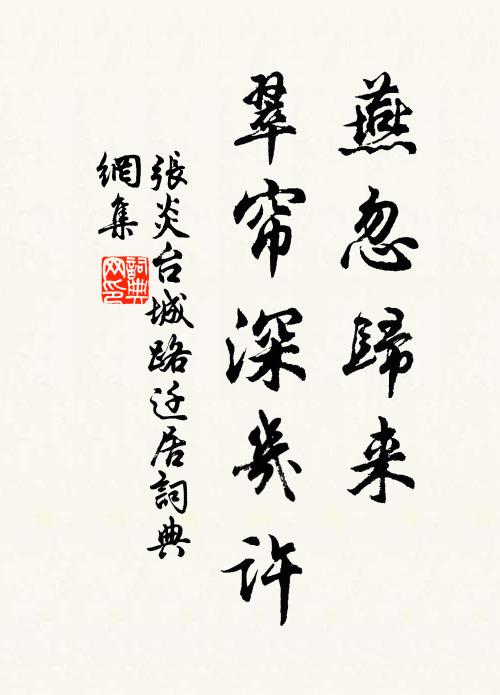 燕忽歸来
翠帘深幾许
張炎台城路迁居詞典
網集
詞典网印